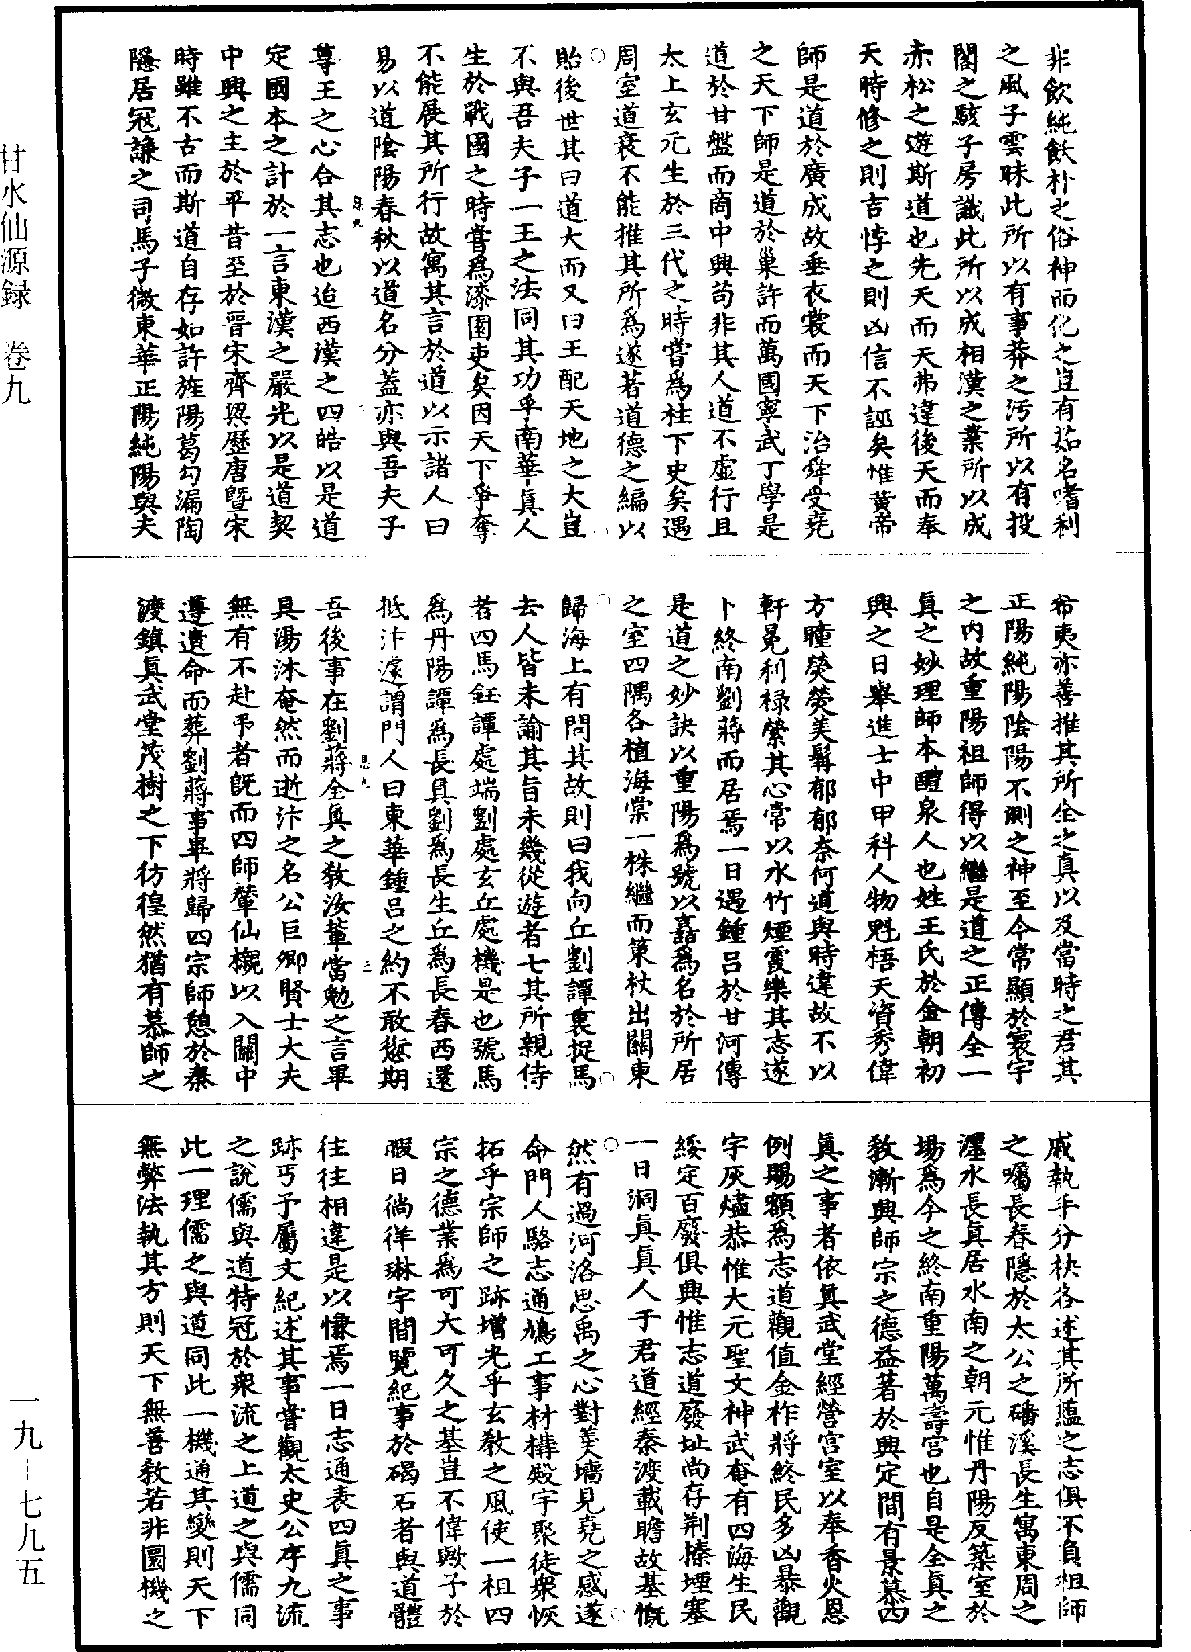 非飲純飫朴之俗神而化之豈有茹名嗜利
之風子雲昧此所以有事莽之污所以有投
閣之駭子房識此所以成相漢之業所以成
赤松之遊斯道也先天而天弗違後天而奉
天時修之則吉悖之則凶信不誣矣惟黃帝
師是道於廣成故垂衣裳而天下治舜受堯
之天下師是道於巢許而萬國寧武丁學是
道於甘盤而商中興苟非其人道不虛行且
太上玄元生於三代之時嘗為柱下史矣遇
周室道衰不能推其所為遂著道德之編以
貽後世其曰道大而又曰王配天地之大豈
不與吾夫子一王之法同其功乎南華真人
生於戰國之時嘗為漆園吏矣因天下爭奪
不能展其所行故寓其言於道以示諸人曰
易以道陰陽春秋以道名分蓋亦與吾夫子
尊王之心合其志也迨西漢之四皓以是道
定國本之計於一言東漢之嚴光以是道契
中興之主於平昔至於晉宋齊梁歷唐暨宋
時雖不古而斯道自存如許旌陽葛勾漏陶
隱居寇謙之司馬子微東華正陽純陽與夫
希夷亦善推其所全之真以及當時之君其
正陽純陽陰陽不測之神至今常顯於寰宇
之內故重陽祖師得以繼是道之正傳全一
真之妙理師本醴泉人也姓王氏於金朝初
興之日舉進士中甲科人物魁梧天資秀偉
方瞳熒熒美髯郁郁奈何道與時違故不以
軒冕利祿縈其心常以水竹煙霞樂其志遂
卜終南劉蔣而居焉一日遇鍾呂於甘河傳
是道之妙訣以重陽為號以嚞為名於所居
之室四隅各植海棠一株繼而策杖出關東
歸海上有問其故則曰我向丘劉譚裏捉馬
去人皆未諭其旨未幾從遊者七其所親侍
者四馬鈺譚處端劉處玄丘處機是也號馬
為丹陽譚為長真劉為長生丘為長春西還
抵汴遽謂門人曰東華鍾呂之約不敢愆期
吾後事在劉蔣全真之教汝輩當勉之言畢
具湯沐奄然而逝汴之名公巨卿賢士大夫
無有不赴弔者既而四師輦仙櫬以入關中
遵遺命而葬劉蔣事畢將歸四宗師憩於秦
渡鎮真武堂茂樹之下彷徨然猶有慕師之
戚執手分袂各述其所蘊之志俱不負祖師
之囑長春隱於太公之磻溪長生寓東周之
瀍水長真居水南之朝元惟丹陽反築室於
場為今之終南重陽萬壽宮也自是全真之
教漸興師宗之德益著於興定間有景慕西
真之事者依真武堂經營宮室以奉香火恩
例賜額為志道觀值金祚將終民多凶暴觀
宇灰燼恭惟大元聖文神武奄有四海生民
綏定百廢俱興惟志道廢址尚存荊榛堙塞
一日洞真真人于君道經秦渡載瞻故基慨
然有過河洛思禹之心對羹墻見堯之感遂
命門人駱志通鳩工事材構殿宇聚徒衆恢
拓乎宗師之跡增光乎玄教之風使一祖四
宗之德業為可大可久之基豈不偉歟予於
暇日徜徉琳宇間覽紀事於碣石者與道體
往往相違是以慊焉一日志通表四真之事
跡丐予屬文紀述其事嘗觀太史公序九流
之說儒與道特冠於衆流之上道之與儒同
此一理儒之與道同此一機通其變則天下
無弊法執其方則天下無善教若非圓機之
甘水仙源録　卷九
一九－七九五